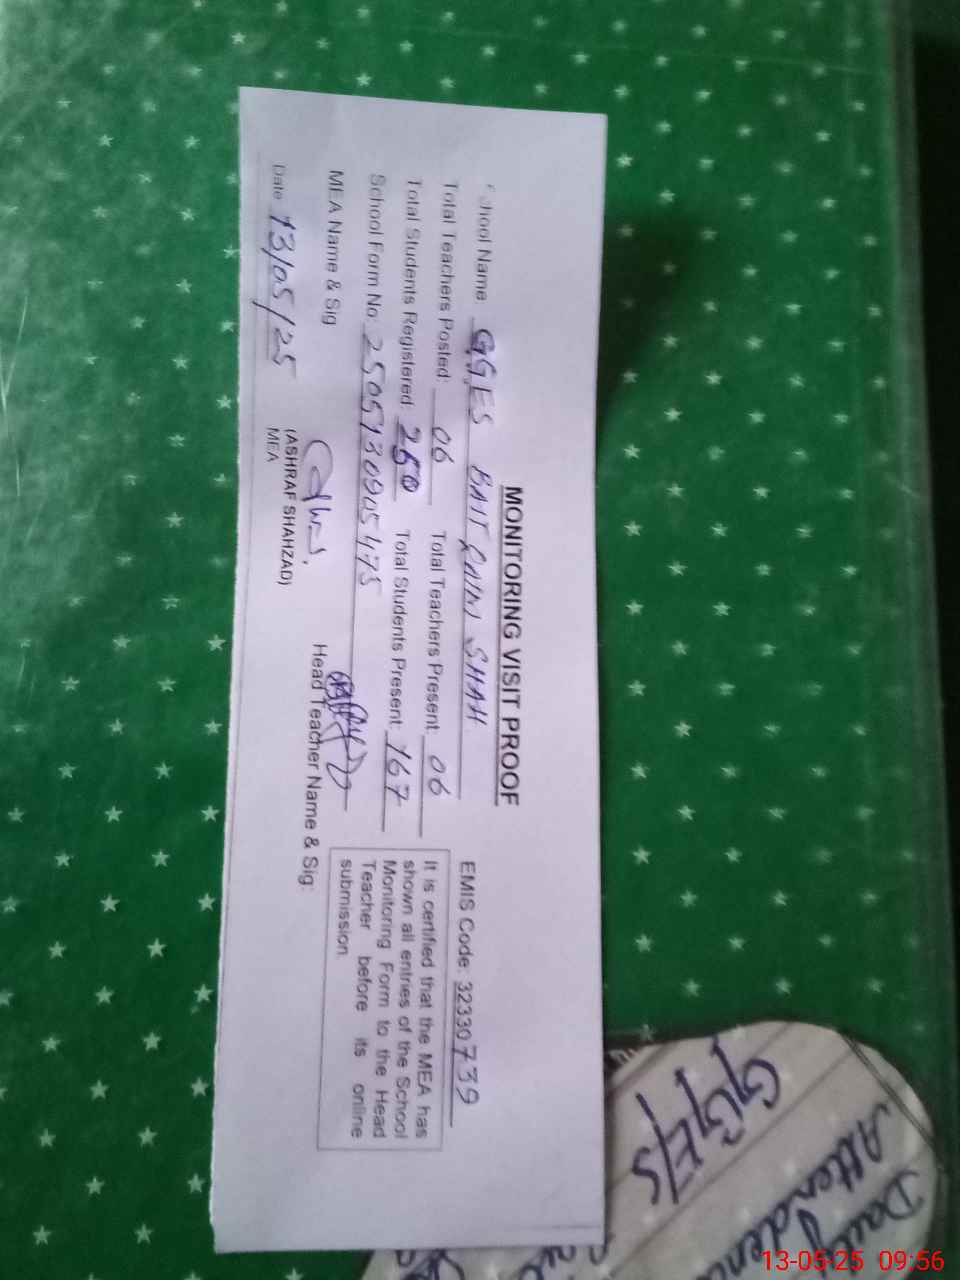 MONITORING VISIT PROOF
School Name: GGES BAIT RAIN SHAH EMIS Code: 32330739
Total Teachers Posted: 06 Total Teachers Present: 06
Total Students Registered: 250 Total Students Present: 167
School Form No: 2505130905475
MEA Name & Sig
(ASHRAF SHAHZAD)
MEA
Head Teacher Name & Sig:
Date 13/05/25
It is certified that the MEA has
shown all entries of the School
Monitoring Form to the Head
Teacher before its online
submission
GGE/S
Attendenc
Daily
13-05-25 09:56